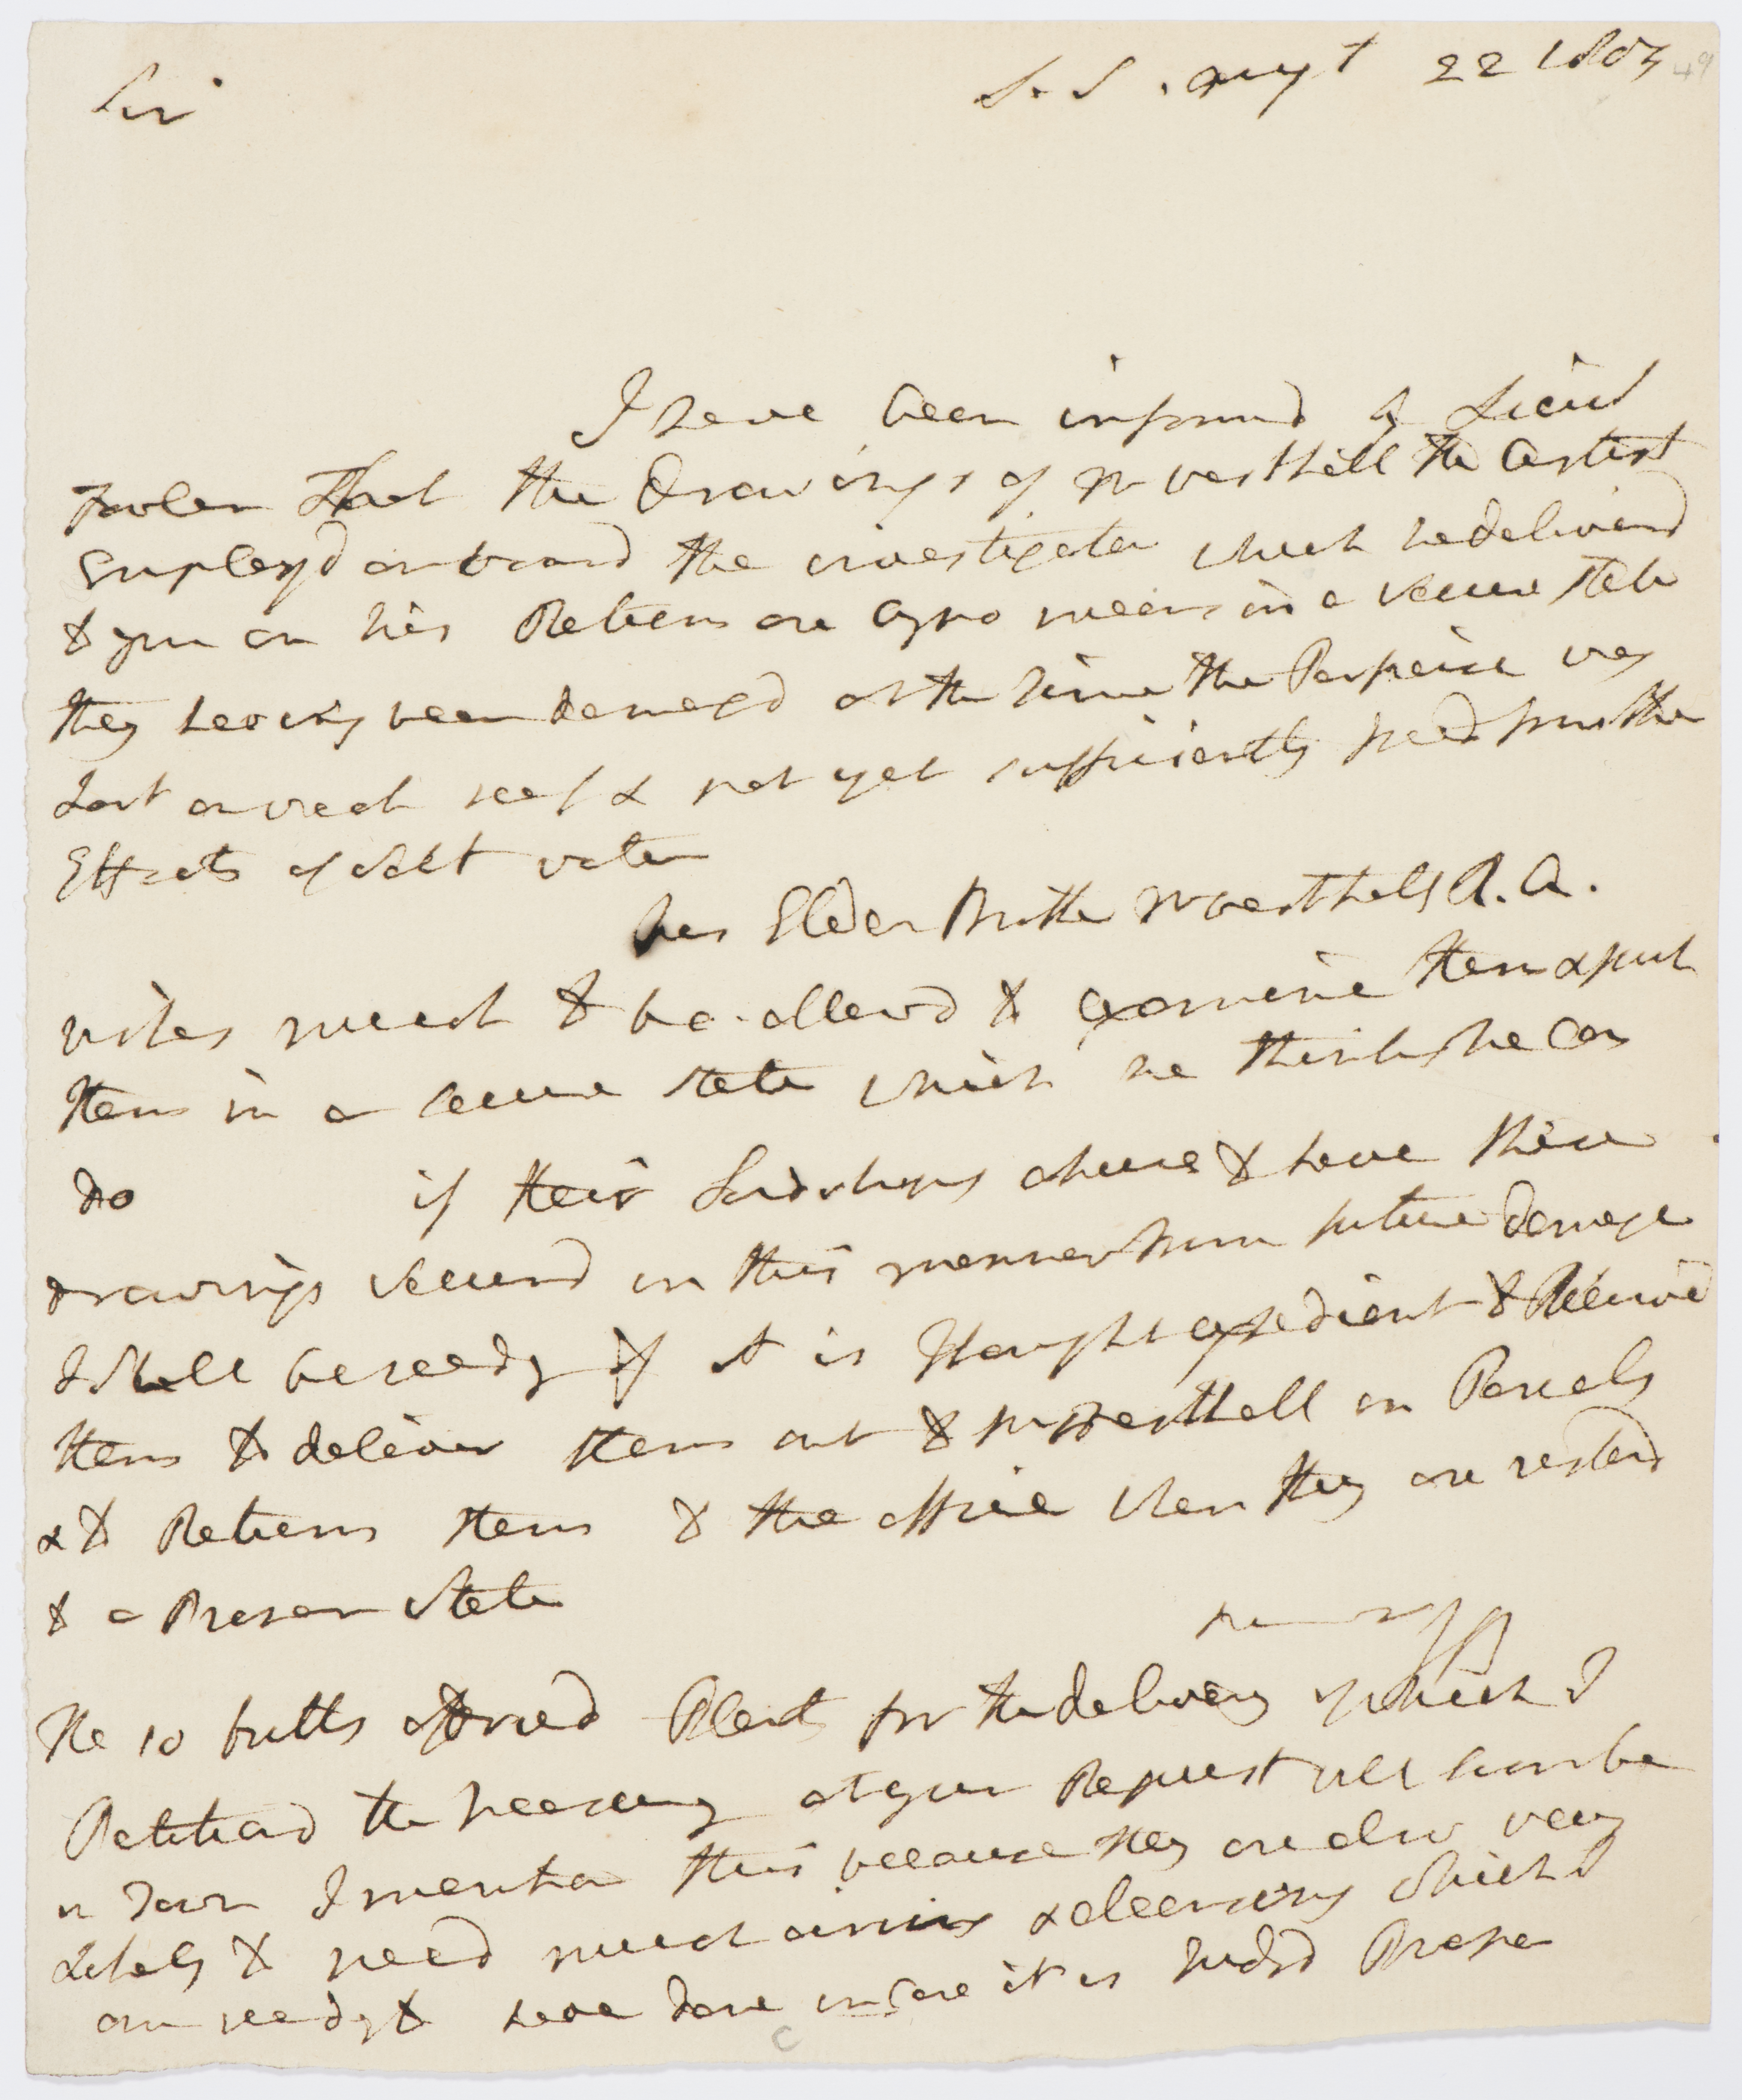 Sir
S. S. Augst 22 1805
49
I have been informd by Lieut
Fowler that the Drawings of Mr Westhall the Artist
Employd on board the investigator which he deliverd
to you on his Return are by no means in a secure state
they having been damagd at the time the Porpoise was
Lost on wreck reef & not yet sufficiently freed from the
Effects of Salt water
his Elder Brother Mr Westhall R. A.
wishes much to be allowd to Examine them & put
them in a secure state which he thinks he can
do if their Lordships chuse to have these
drawings securd in this manner from future damage
I Shall be ready if it is thought expedient to Receive
them to deliver them out to Mr Westhall in Parcels
& to Return them to the office when they are restord
to a Proper State
The 10 butts of dried Plants for the delivery of which I
Petitiond the Treasury at your Request will soon be
in Town I mention this because they are also very
Likely to need much airing & cleansing which I
am ready to have done in Case it is Judgd Proper
C